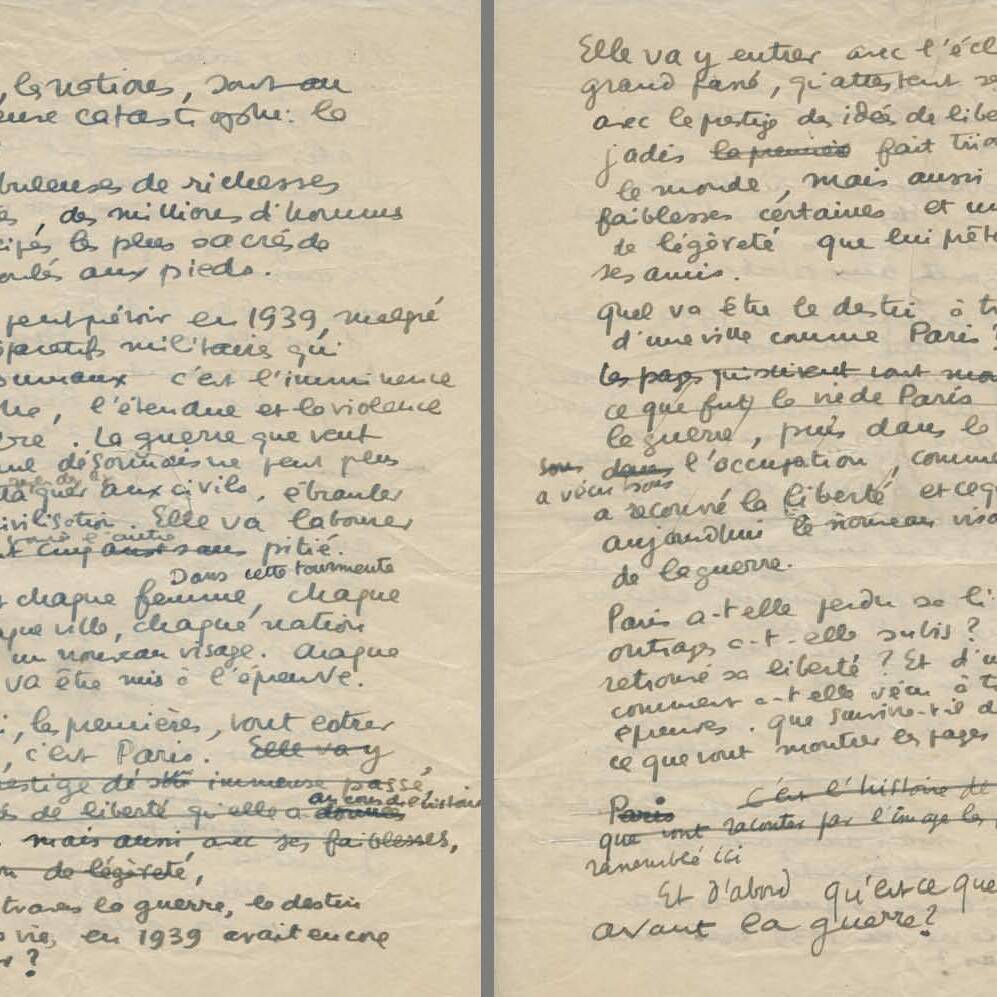 , les nations, sont au
euse catastrophe: la
buleuses de richesses
es, des millions d'hommes
cipes les plus sacrés de
oulés aux pieds.
peut prévoir en 1939, malgré
éparatifs militaires qui
journaux c'est l'imminence
me, l'étendue et la violence
bre. La guerre que veut
désormais ne peut plus
attaquer aux civils, ébranler
civilisation. Elle va labourer
l'autre
cinq ans sans pitié.
Dans cette tourmente
chaque femme, chaque
que ville, chaque nation
un nouveau visage. Chaque
va être mis à l'épreuve.
i, les premières, vont entrer
, c'est Paris. Elle va y
restige de immense passé,
au cours de l'histoire
s de liberté qu'elle a donnés
mais aussi avec ses faiblesses,
on de légèreté,
travers la guerre, le destin
vie, en 1939 avait encore
?
Elle va y entrer avec l'écl
grand passé, qu'attestent se
avec le prestige des idées de libe
jadis la première fait trio
le monde, mais aussi
faiblesses certaines et un
de légèreté que lui prête
ses amis.
Quel va être le destin à tr
d'une ville comme Paris?
Les pages qui suivent vont mon
ce que fut la vie de Paris
la guerre, puis dans la
sous dans l'occupation, comme
a vécu sous
a recouvré la liberté et ce q
aujourd'hui le nouveau visa
de la guerre.
Paris a-t-elle perdu sa li
outrages a-t-elle subis?
retrouvé sa liberté? Et d'u
comment a-t-elle vécu à t
épreuves. Que survive-t-il d
ce que vont montrer les pages
Paris C'est l'histoire de
que vont raconter par l'image les p
rassemblé ici
Et d'abord qu'est ce que
avant la guerre?